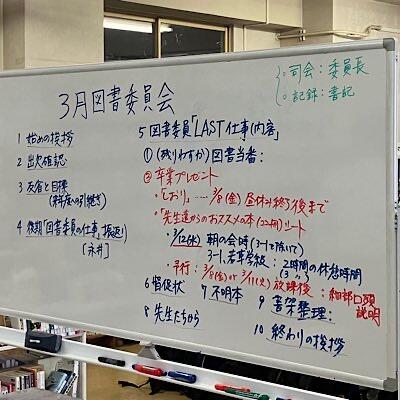 3月図書委員会
○司会：委員長
○記録：書記
1 始めの挨拶
2 出欠確認
3 反省と目標
(来年度への引継ぎ)
4 後期「図書委員の仕事」振返り
[永井]
5 図書委員「LAST仕事(内容)」
①(残りわずか)図書当番：
②卒業プレゼント
・「しおり」……3/8(金)昼休み終了後まで
・"先生達からのおススメの本(ココ用)シート
・3/12(水)朝の会時(3-1を除いて)
3-1、若草学級：2時間の休憩時間
・発行：3/8(金)or 3/11(火)放課後：細部口頭説明
6 督促状
7 不明本
8 先生たちから
9 書架整理：
10 終わりの挨拶